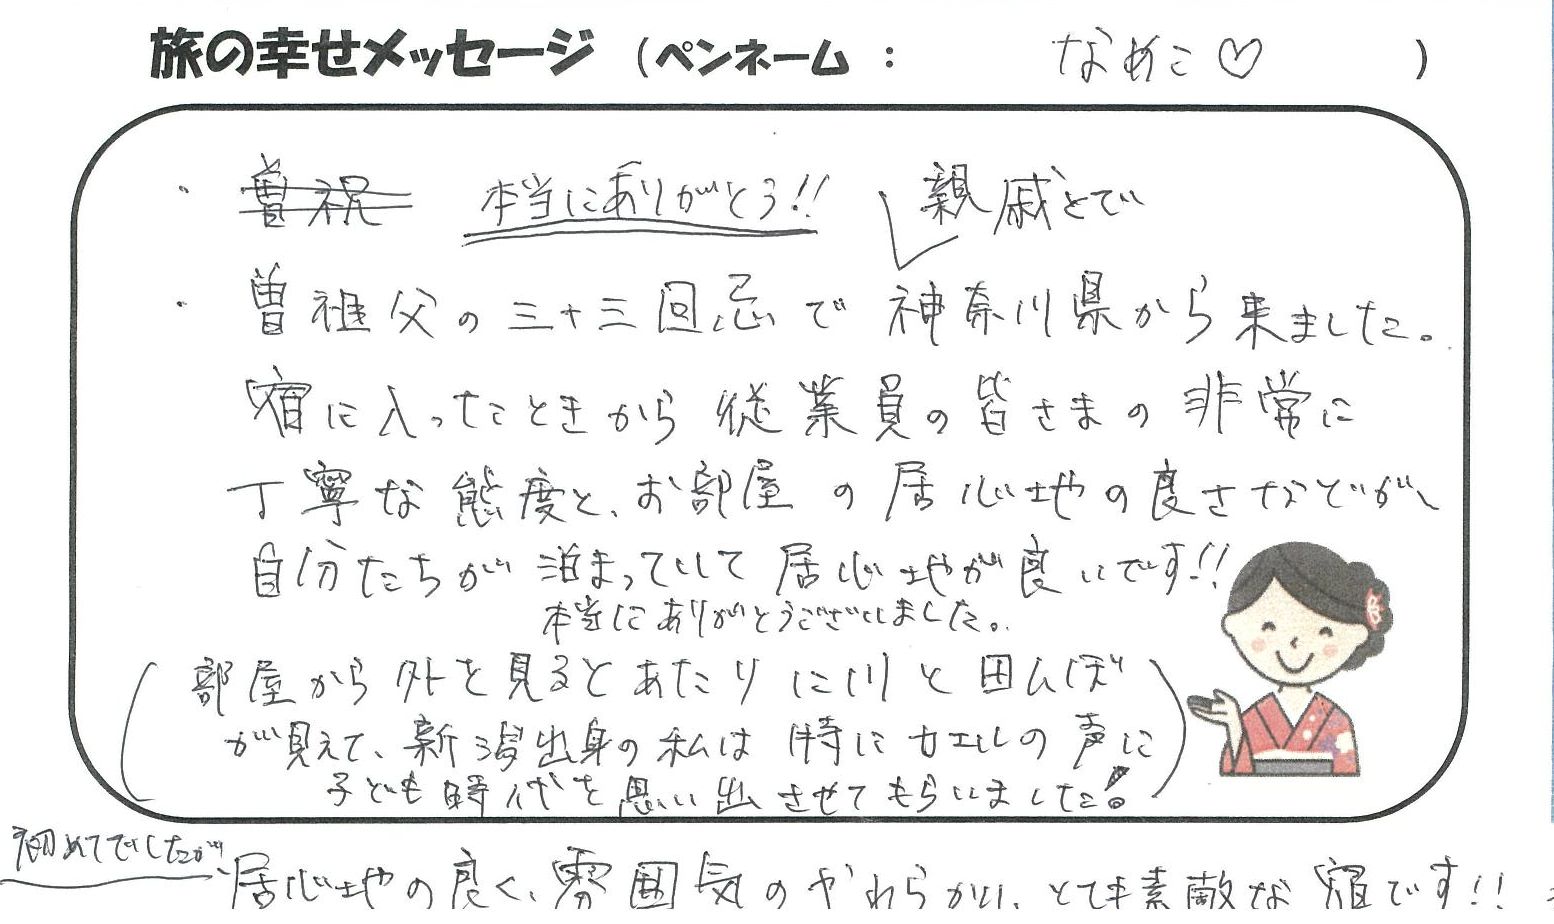 旅の幸せメッセージ （ペンネーム： なめこ♡ ）
・ 曽祝 本当にありがとう!! 親戚とで
・ 曽祖父の三十三回忌で神奈川県から来ました。
宿に入ったときから従業員の皆さまの非常に
丁寧な態度と、お部屋の居心地の良さなどが、
自分たちが泊まっていて居心地が良いです!!
本当にありがとうございました。
（部屋から外を見るとあたりに川と田んぼ
が見えて、新潟出身の私は特にカエルの声に
子ども時代を思い出させてもらいました!）
初めてでしたが、
居心地の良く、雰囲気のやわらかい、とても素敵な宿です!!